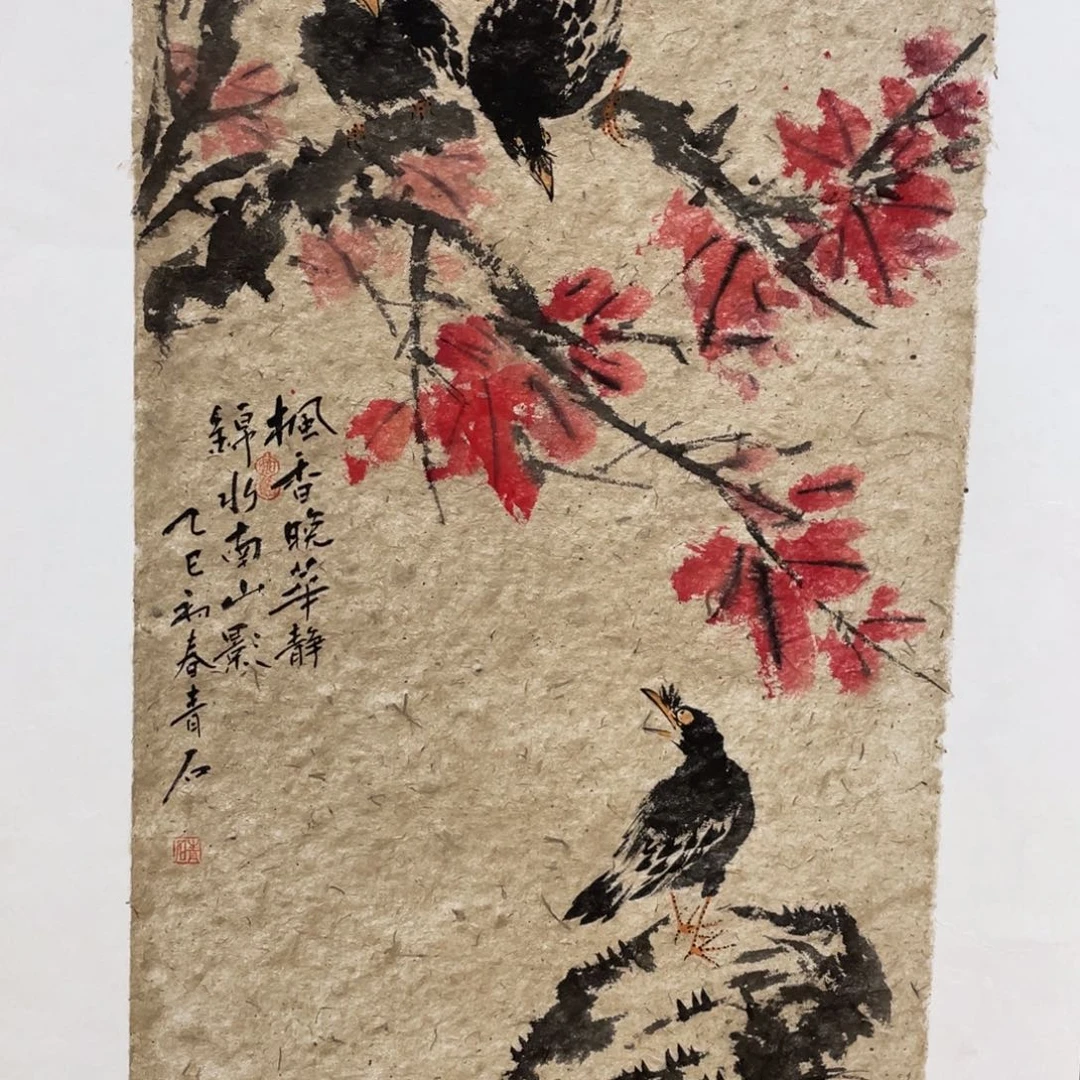 楓香晚華靜
錦水南山影
乙巳初春青石